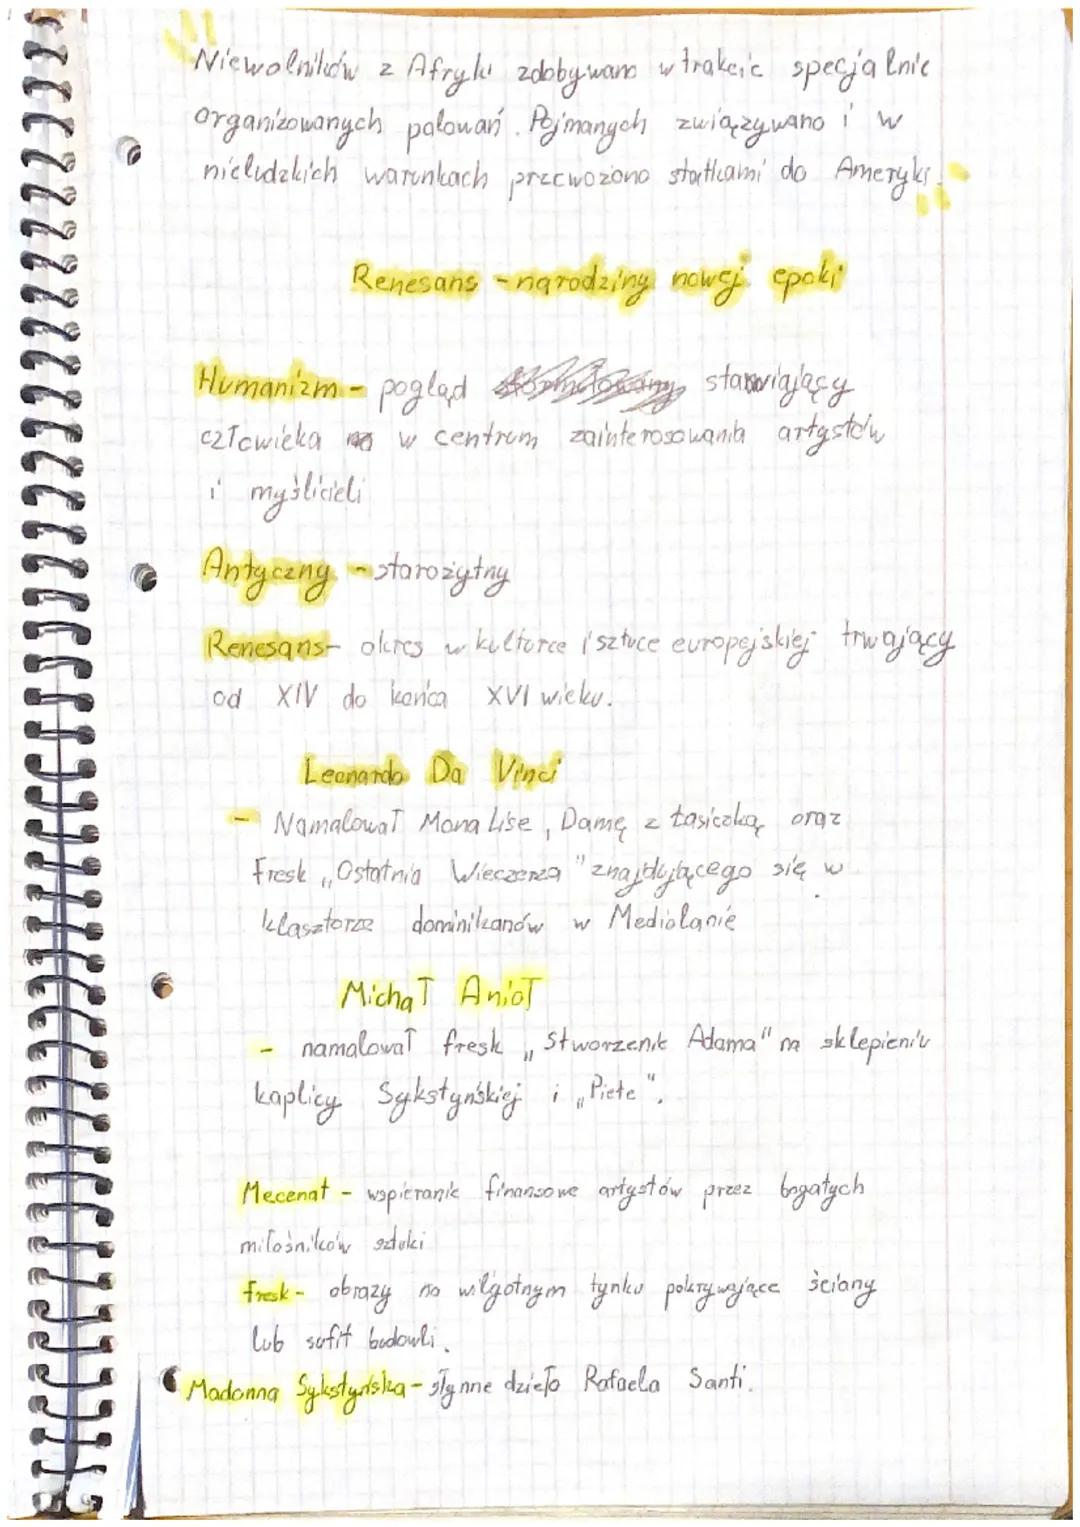 Niewolników z Afryki zdobywano w trakcie specjalnie
organizowanych polowań. Pojmanych związywano i w
nieludzkich warunkach przewożono statkami do Ameryki.
Renesans - narodziny nowej epoki
Humanizm - pogląd stawiający
człowieka w centrum zainterosowania artystów
i myślicieli
Antyczny - starożytny
Renesans - okres w kulturce i sztuce europejskiej trwający
od XIV do końca XVI wieku.
Leonardo Da Vinci
- Namalował Mona Lise, Damę z łasiczką oraz
fresk „Ostatnia Wieczerza" znajdującego się w
klasztorze dominikanów w Mediolanie
Michał Anioł
- namalował fresk „Stworzenie Adama" na sklepieniu
kaplicy Sykstyńskiej i „Piete".
Mecenat - wspieranie finansowe artystów przez bogatych
miłośników sztuki
fresk - obrazy na wilgotnym tynku pokrywające ściany
lub sufit budowli.
Madonna Sykstyńska - słynne dzieło Rafaela Santi.